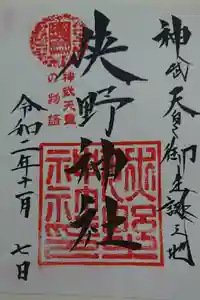 神武天皇御生誕之地
狭野神社
神武天皇
の物語
令和二年十一月
七日
狭野
神社